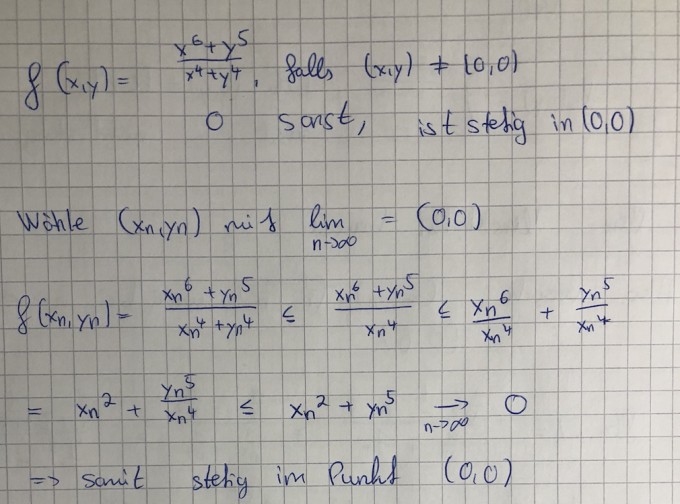 f(x,y) = (x^6+y^5)/(x^4+y^4), falls (x,y) ≠ (0,0)
0 sonst, ist stetig in (0,0)
Wähle (xn,yn) mit lim n->∞ = (0,0)
f(xn,yn) = (xn^6+yn^5)/(xn^4+yn^4) ≤ (xn^6+yn^5)/(xn^4) ≤ xn^6/xn^4 + yn^5/xn^4
= xn^2 + yn^5/xn^4 ≤ xn^2 + yn^5 → n->∞ 0
=> somit stetig im Punkt (0,0)